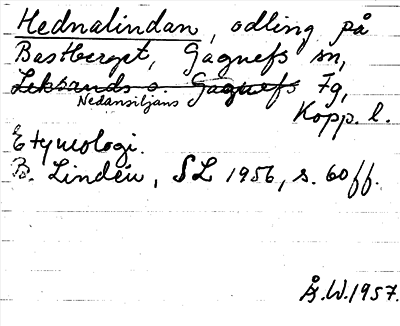 Hednalindan, odling på
Bastberget, Gagnefs sn,
Leksands o. Gagnefs Fg,
Nedansiljans
Kopp. l.
Etymologi.
B. Lindén, SL 1956, s. 60 ff.
Å. W. 1957.